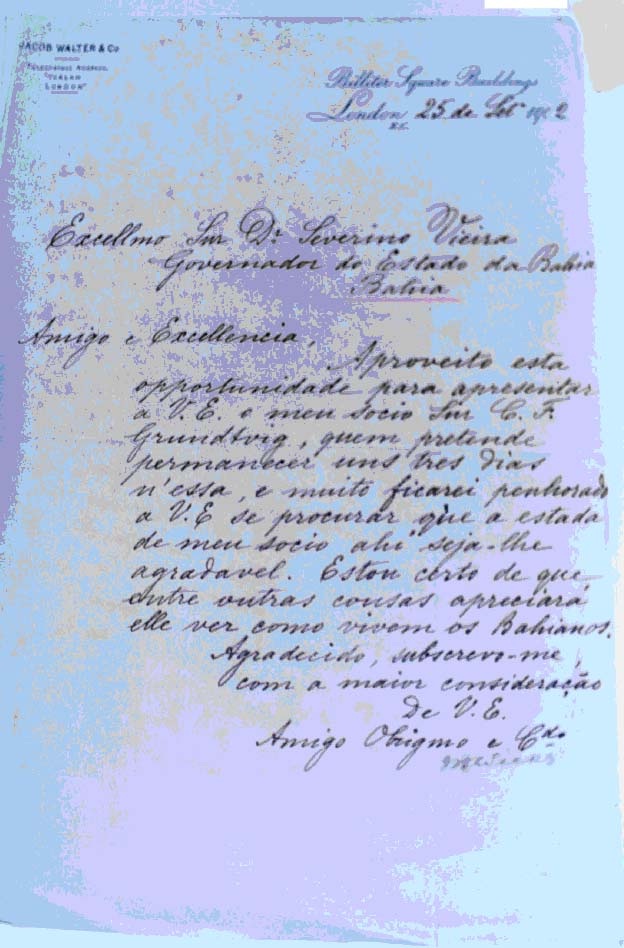 JACOB WALTER & Co
TELEGRAPHIC ADDRESS,
LONDON
Billiter Square Buildings
London 25 de Set 1902
E.C.
Excellmo Snr Dr Severino Vieira
Governador do Estado da Bahia
Bahia
Amigo e Excellencia,
Aproveito esta
opportunidade para apresentar
a V.E. o meu socio Snr C. F.
Grundtvig, quem pretende
permanecer uns tres dias
n'essa, e muito ficarei penhorado
a V.E se procurar que a estada
de meu socio ahi seja-lhe
agradavel. Estou certo de que,
entre outras cousas apreciará
elle ver como vivem os Bahianos.
Agradecido, subscrevo-me,
com a maior consideração
De V.E.
Amigo Obrigmo e Cdo